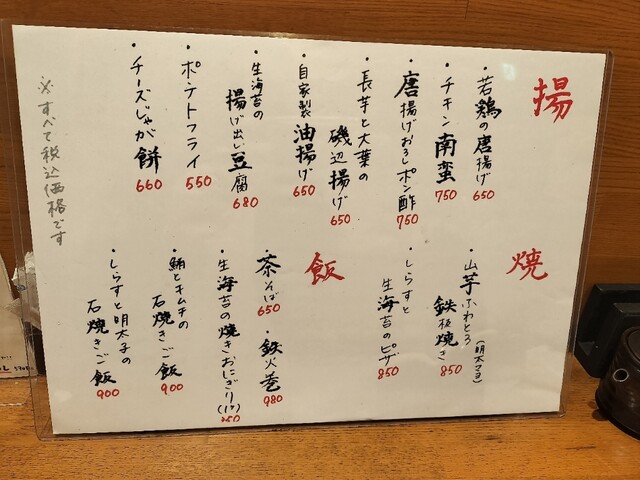 揚
・若鶏の唐揚げ 650
・チキン南蛮 750
・唐揚げおろしポン酢 750
・長芋と大葉の
磯辺揚げ 650
・自家製油揚げ 650
・生海苔の
揚げ出し豆腐 680
・ポテトフライ 550
・チーズじゃが餅 660
焼
・山芋ふわとろ(明太マヨ)
鉄板焼き 850
・しらすと
生海苔のピザ 850
飯
・茶そば 650
・鉄火巻 980
・生海苔の焼きおにぎり(1ケ)
・鮪とキムチの
石焼きご飯 900
・しらすと明太子の
石焼きご飯 900
※すべて税込価格です